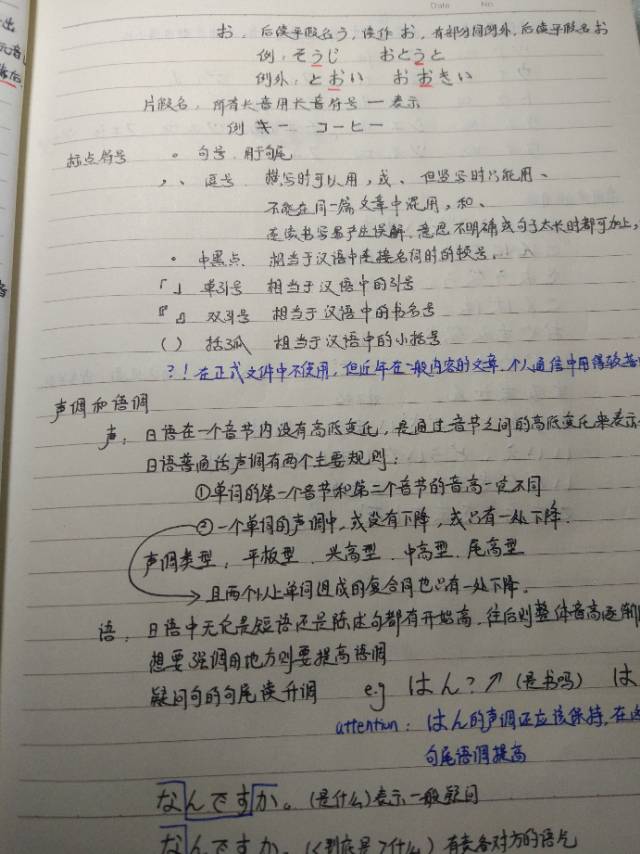 Date No
出
元音
お，后续平假名う，读作 お，有部分词例外，后续平假名お
例：そうじ おとうと
例外：とおい おおきい
片假名，所有长音用长音符号 ー 表示
例 キー コーヒー
标点符号 。句号 用于句尾
，、逗号 横写时可以用，或、但竖写时只能用、
不能在同一篇文章中混用，和、
连续书写易产生误解、意思不明确或句子太长时都可加上，
・ 中黑点 相当于汉语中连接名词时的顿号，
「」 单引号 相当于汉语中的引号
『』 双引号 相当于汉语中的书名号
（） 括弧 相当于汉语中的小括号
？！在正式文件中不使用，但近年在一般内容的文章、个人通信中用得较
声调和语调
声：日语在一个音节内没有高低变化，是通过音节之间的高低变化来表示
日语普通话声调有两个主要规则：
①单词的第一个音节和第二个音节的音高一定不同
②一个单词的声调中，或没有下降，或只有一处下降．
声调类型，平板型．头高型．中高型．尾高型
且两个以上单词组成的复合词也只有一处下降．
语：日语中无论是短语还是陈述句都有开始高，往后则整体音高逐渐
想要强调的地方则要提高语调
疑问句的句尾读升调 e.g はん？↗（是书吗） は
attention：はん的声调还应该保持，在这
句尾语调提高
なんですか。（是什么）表示一般疑问
なんですか。（到底是什么）有责备对方的语气